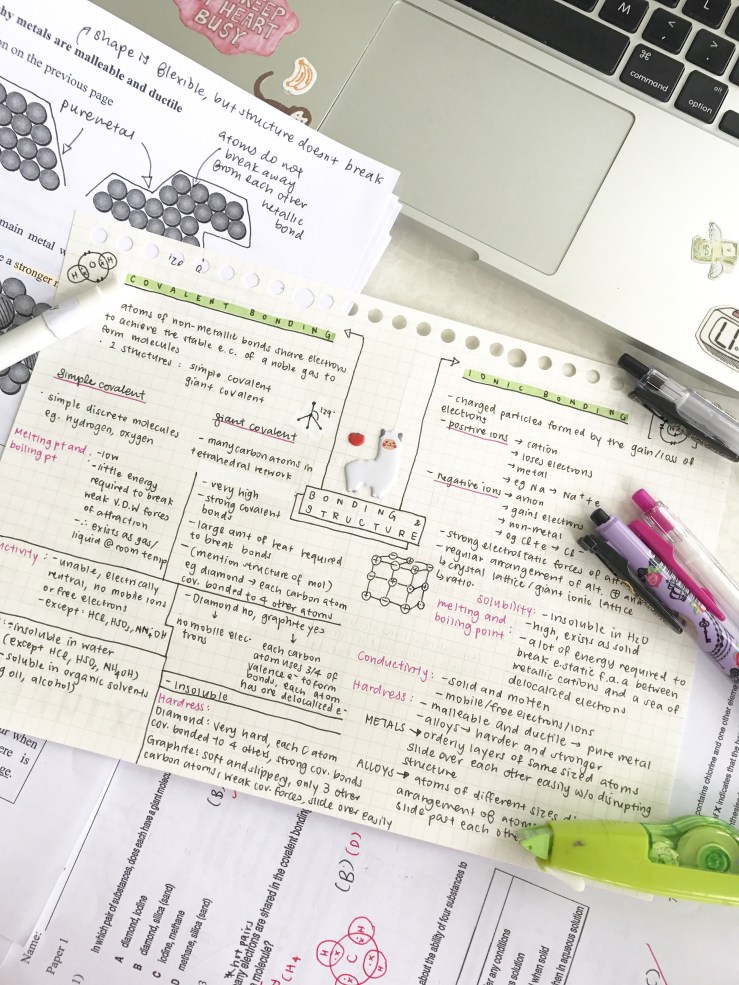 KEEP
HEART
BUSY.
M
<
,
>
.
L
⌘
command
alt
option
LI
hy metals are malleable and ductile
shape is flexible, but structure doesnt break
on on the previous page
pure metal
atoms do not
break away
from each other
metallic
bond
main metal w
e a stronger
H O H
COVALENT BONDING
atoms of non-metallic bonds share electrons
to achieve the stable e.c. of a noble gas to
form molecules
· 2 structures: simple covalent
giant covalent
simple covalent
· simple discrete molecules
eg. hydrogen, oxygen
Melting pt and
boiling pt :
- low
- little energy
required to break
weak V.D.W forces
of attraction
- ∴ exists as gas/
liquid @ room temp
uctivity : - unable, electrically
neutral, no mobile ions
or free electrons
- except: HCl, HSO₂, NH₄OH
: - insoluble in water
(except HCl, HSO₂, NH₄OH)
- soluble in organic solvents
g oil, alcohol)
giant covalent
- many carbon atoms in
tetrahedral network
- very high
- strong covalent
bonds
- large amt of heat required
to break bonds
- (mention structure of mol)
eg diamond → each carbon atom
cov. bonded to 4 other atoms
- Diamond no, graphite yes
no mobile elec-
trons
each carbon
atom uses 3/4 of
valence e- to form
bonds, each atom
has one delocalized e-
- Insoluble
Hardness:
Diamond: very hard, each C atom
cov. bonded to 4 others, strong cov. bonds
Graphite: soft and slippery, only 3 other
carbon atoms, weak cov. forces, slide over easily
BONDING &
STRUCTURE
IONIC BONDING
- charged particles formed by the gain/loss of
electrons
- positive ions → cation
→ loses electrons
→ metal
→ eg Na → Na⁺ + e
- negative ions → anion
→ gains electrons
→ non-metal
→ eg Cl + e → Cl⁻
- strong electrostatic forces of attr
- regular arrangement of alt. ⊕ and
↳ crystal lattice/giant ionic lattice
↳ ratio:
solubility: - insoluble in H₂O
melting and
boiling point:
- high, exists as solid
- a lot of energy required to
break e·static f.o.a between
metallic cations and a sea of
delocalized electrons
Conductivity: - solid and molten
- mobile/free electrons/ions
Hardness: - malleable and ductile → pure metal
- alloys → harder and stronger
METALS → orderly layers of same sized atoms
slide over each other easily w/o disrupting
structure
ALLOYS → atoms of different sizes
arrangement of atom
slide past each oth
our when
ere is
ge.
Name:
Paper 1
1)
In which pair of substances, does each have a giant molecul
A diamond, iodine
B diamond, silica (sand)
C iodine, methane
D methane, silica (sand)
(B)
* not pairs
any electrons are shared in the covalent bonding
molecule?
CH₄
(B) (D)
H
H C H
H
about the ability of four substances to
er any conditions
s solution
when solid
hen in aqueous solution
ontains chlorine and one other eleme
of X indicates that the b